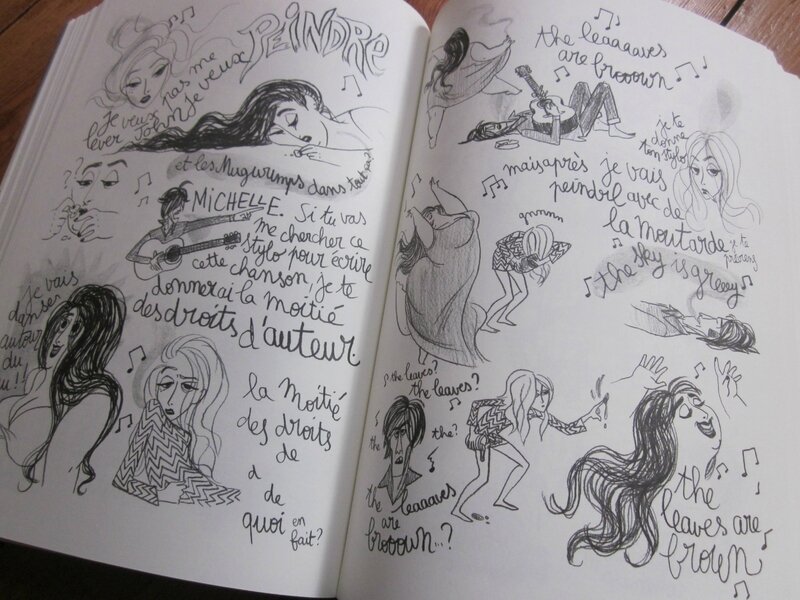 PEINDRE
pas me
je veux
lever John je veux
et les Mugwumps dans tout ça?!
MICHELLE. Si tu vas
me chercher ce
stylo pour écrire
cette chanson, je te
donnerai la moitié
des droits d'auteur.
je vais
danser
autour
du
!!
la moitié
des droits
de
d
de
quoi en
fait?
the leaaaaves
are brooown
je te
donne
ton stylo
mais après je vais
peindre avec de
la moutarde
je te
préviens
gnnnnn
the sky is greeey
the leaves?
the leaves?
the
the?
the leaaaaves
are
broooown...?
the
leaves are
brown